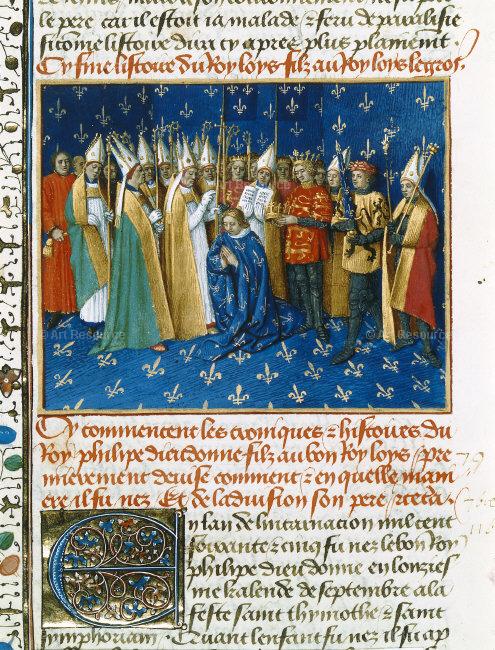 le pere car il estoit ia malade & feru de paralisie
si come listoire dira cy apres plus plainement
Cy fine listoire du Roy loys filz au Roy loys le gros.
© Art Resource
© Art Resource
Cy commencent les croniques & histoires du
Roy phelipe dieudonne filz au bon Roy loys / pre
mierement devise comment & en quelle mani
ere il fu nez Et de la division son pere
En lan de lincarnacion mil cent
soixante & cinq fu nez le bon Roy
phelipe dieudonne en lonzies
me kalende de septembre a la
feste saint thymothe & saint
symphorian. Quant lenfant fu nez il fu ap